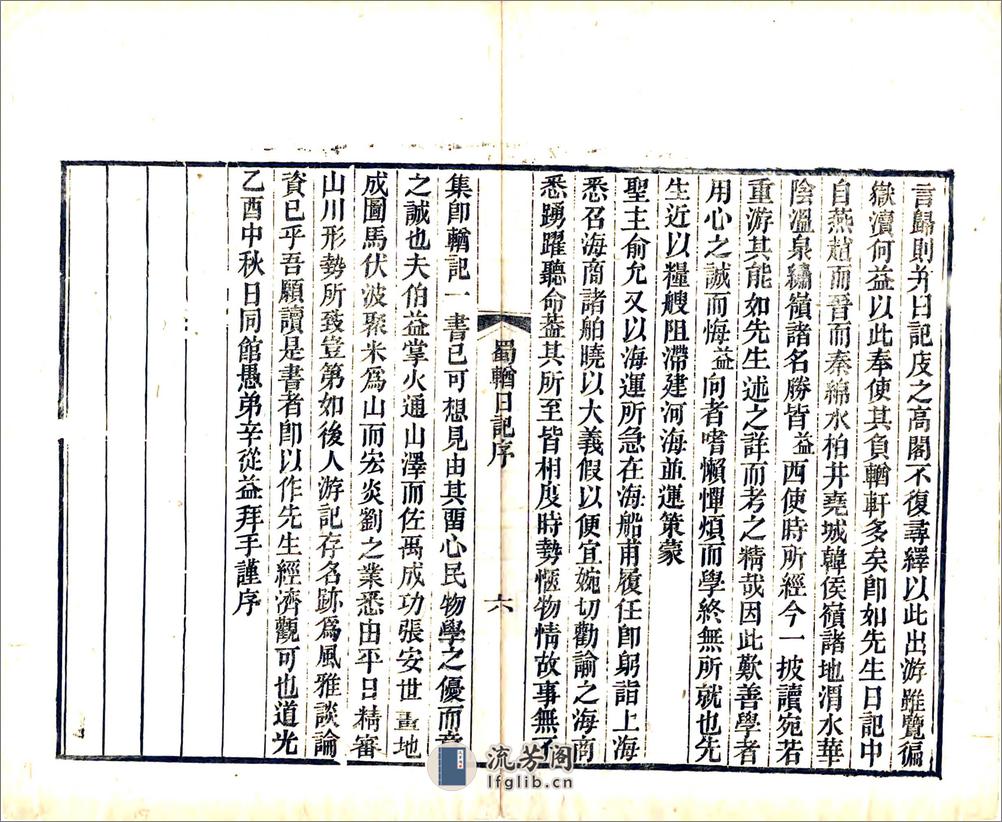 言歸則并日記庋之高閣不復尋繹以此出游雖覽徧
嶽瀆何益以此奉使其負輶軒多矣卽如先生日記中
自燕趙而晉而秦緜水柏井堯城韓侯嶺諸地渭水華
陰溫泉繡嶺諸名勝皆益西使時所經今一披讀宛若
重游其能如先生述之詳而考之精哉因此歎善學者
用心之誠而悔益向者嗜懶憚煩而學終無所就也先
生近以糧艘阻滯建河海並運策蒙
聖主俞允又以海運所急在海船甫履任卽躬詣上海
悉召海商諸舶曉以大義假以便宜婉切勸諭之海商
悉踴躍聽命葢其所至皆相度時勢愜物情故事無不
蜀輶日記序
六
集卽輶記一書已可想見由其畱心民物學之優而意
之誠也夫伯益掌火通山澤而佐禹成功張安世畫地
成圖馬伏波聚米爲山而宏炎劉之業悉由平日精審
山川形勢所致豈第如後人游記存名跡爲風雅談論
資已乎吾願讀是書者卽以作先生經濟觀可也道光
乙酉中秋日同館愚弟辛從益拜手謹序
流芳阁
lfglib.cn